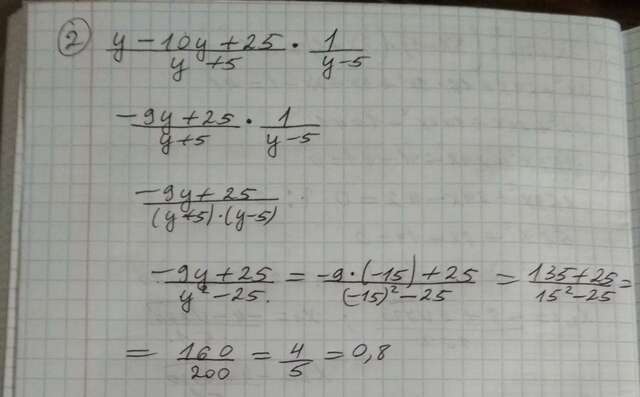 ② (y - 10y + 25)/(y + 5) · 1/(y - 5)
(-9y + 25)/(y + 5) · 1/(y - 5)
(-9y + 25)/((y + 5) · (y - 5))
(-9y + 25)/(y² - 25.) = (-9 · (-15) + 25)/((-15)² - 25) = (135 + 25)/(15² - 25) =
= 160/200 = 4/5 = 0,8